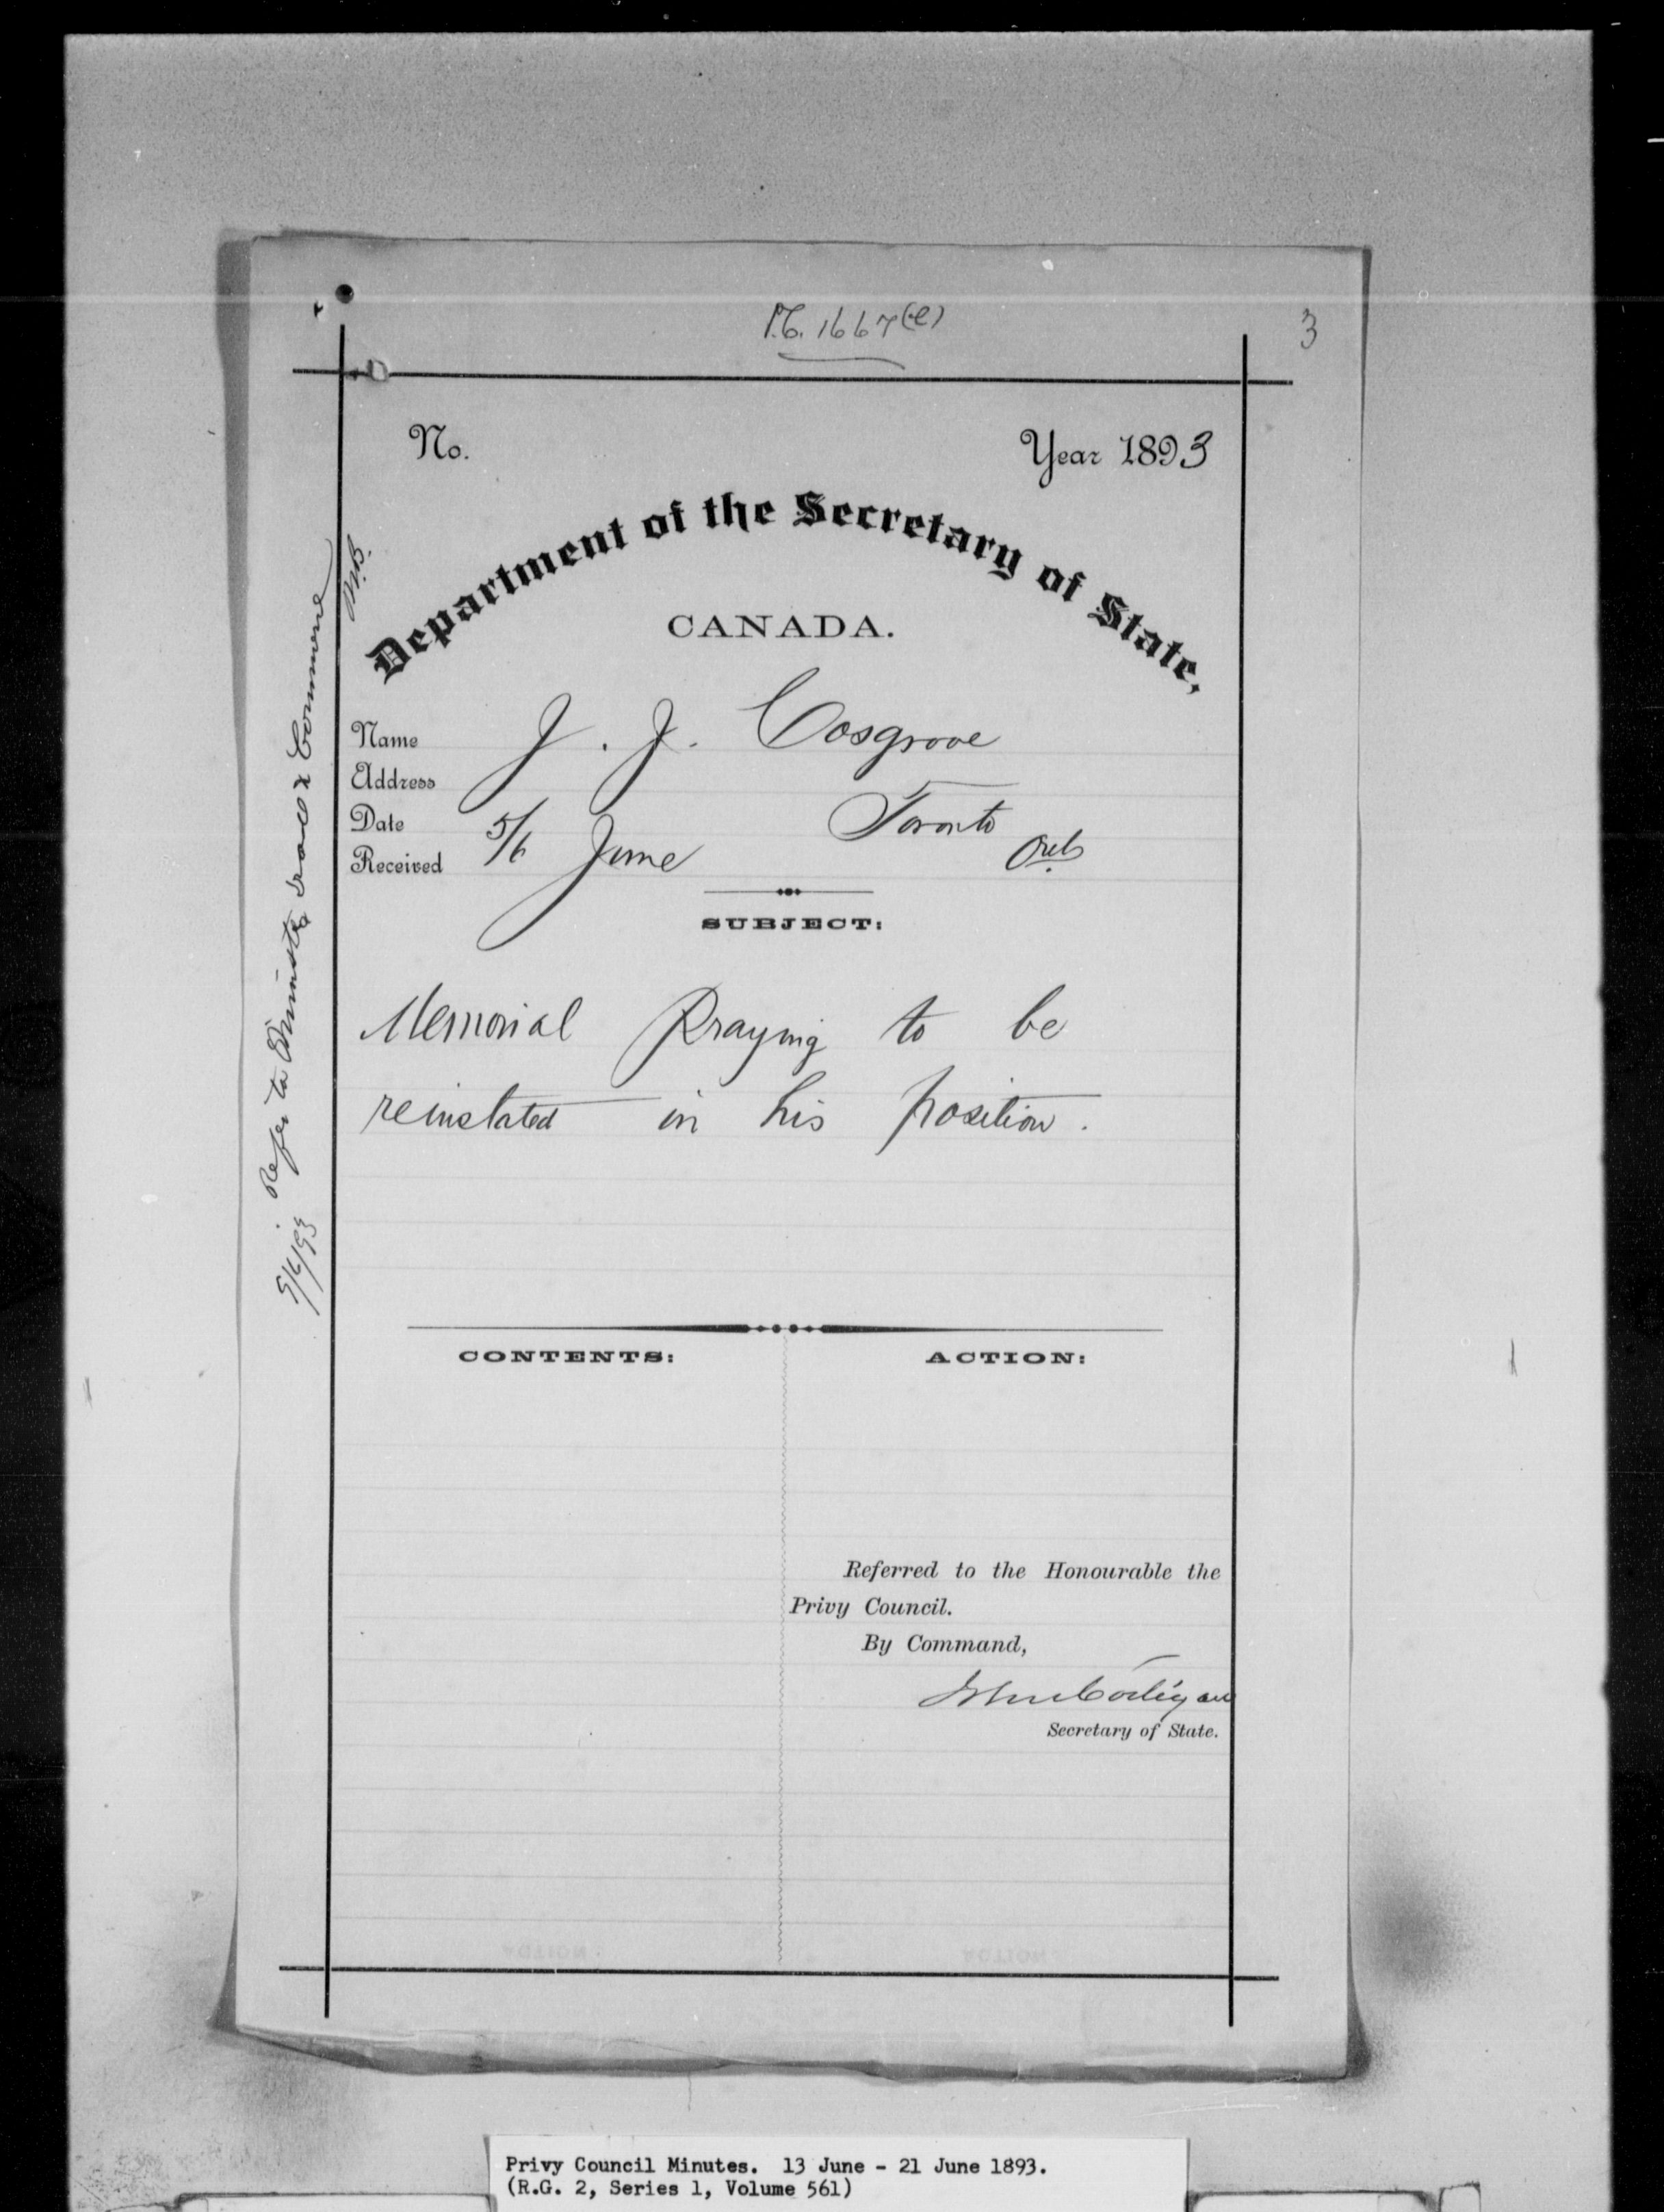 P.C. 1667 (e)
3
No.
Year 1893
Department of the Secretary of State,
CANADA.
Name J. J. Cosgrove
Address Toronto Ont.
Date 5/6 June
Received
SUBJECT:
Memorial Praying to be
reinstated in his position.
CONTENTS:
ACTION:
Referred to the Honourable the
Privy Council.
By Command,
John Costigan
Secretary of State.
9/6/93 Refer to Minister Trade & Commerce
Privy Council Minutes. 13 June - 21 June 1893.
(R.G. 2, Series 1, Volume 561)